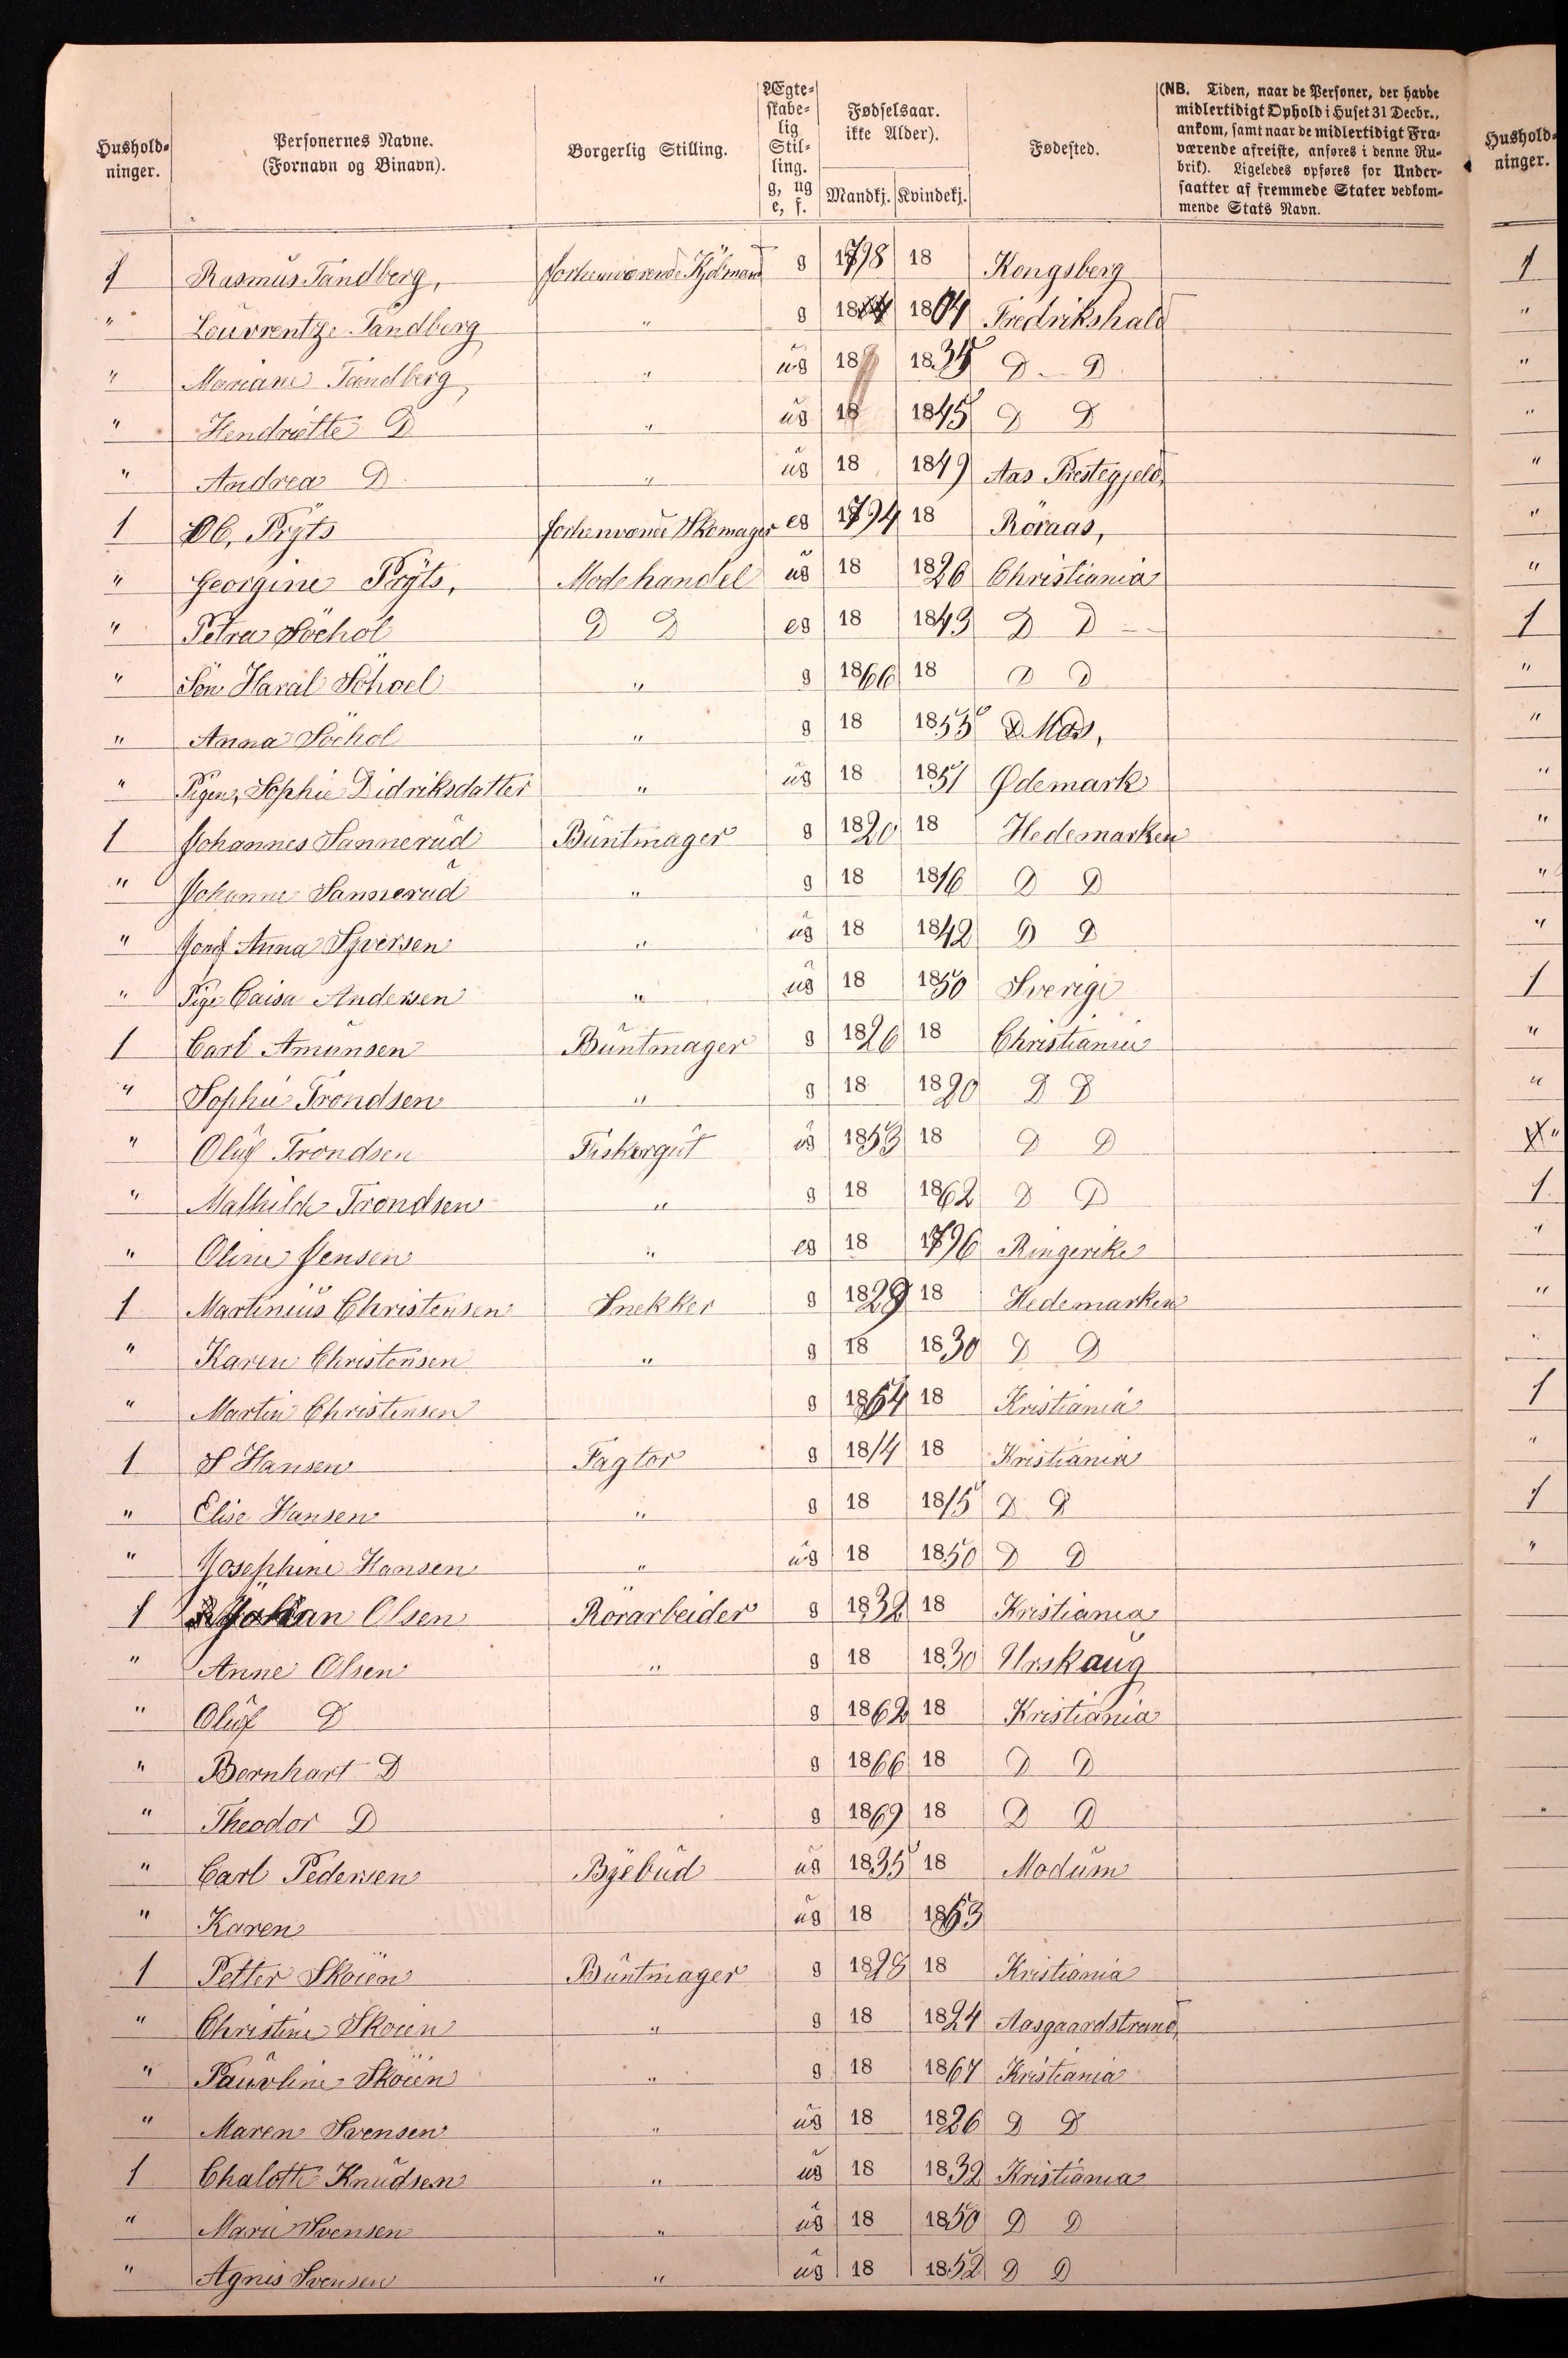 Hushold-
ninger.
Personernes Navne.
(Fornavn og Binavn).
Borgerlig Stilling.
Ægte-
skabe-
lig
Stil-
ling.
g, ug
e, f.
Fødselsaar.
ikke Alder).
Mandkj. Kvindekj.
Fødested.
(NB. Tiden, naar de Personer, der havde
midlertidigt Ophold i Huset 31 Decbr.,
ankom, samt naar de midlertidigt Fra-
værende afreiste, anføres i denne Ru-
brik). Ligeledes opføres for Under-
saatter af fremmede Stater vedkom-
mende Stats Navn.
Hushold-
ninger.
1 Rasmus Tandberg, forhenværende Kjøbmand g 1798 18 Kongsberg 1
" Louvrentze Tandberg " g 18 1804 Fredrikshald "
" Mariane Tandberg " ug 18 1835 D D "
" Hendriette D " ug 18 1845 D D "
" Andrea D " ug 18 1849 Aas Prestegjeld "
1 Ol, Prÿts Skomager eg 1794 18 Röraas, "
" Georgine Prÿts, Modehandel ug 18 1826 Christiania "
" Petra Söehol D D eg 18 1843 D D 1
" Sön Haral Söhoel " g 1866 18 D D "
" Anna Söehol " g 18 1855 Mos, "
" Pigen, Sophie Didriksdatter " ug 18 1851 Ødemark "
1 Johannes Sannerud Buntmager g 1820 18 Hedemarken "
" Johanne Sannerud " g 18 1816 D D "
" Jomf Anna Syversen " ug 18 1842 D D "
" Pige Caisa Andersen " ug 18 1850 Sverige 1
1 Carl Amunsen Buntmager g 1826 18 Christiania "
" Sophie Trondsen " g 18 1820 D D "
" Oluf Trondsen Fiskergut ug 1853 18 D D "
" Mathilde Trondsen " g 18 1862 D D 1
" Oline Jensen " eg 18 1796 Ringerike "
1 Martinius Christensen Snekker g 1829 18 Hedemarken "
" Karen Christensen " g 18 1830 D D "
" Martin Christensen g 1864 18 Kristiania 1
1 S Hansen Fagtor g 1814 18 Kristiania "
" Elise Hansen " g 18 1815 D D 1
" Josephine Hansen " ug 18 1850 D D "
1 Johan Olsen Rörarbeider g 1832 18 Kristiania
" Anne Olsen " g 18 1830 Urskaug
" Oluf D g 1862 18 Kristiania
" Bernhart D g 1866 18 D D
" Theodor D g 1869 18 D D
" Carl Pedersen Byebud ug 1835 18 Modum
" Karen ug 18 1863
1 Petter Skoien Buntmager g 1828 18 Kristiania
" Christine Skoien " g 18 1824 Aasgaardstrand
" Pauvline Skoien " g 18 1867 Kristiania
" Maren Svensen " ug 18 1826 D D
1 Chalotte Knudsen " ug 18 1832 Kristiania
" Marie Svensen " ug 18 1850 D D
" Agnis Svensen " ug 18 1852 D D